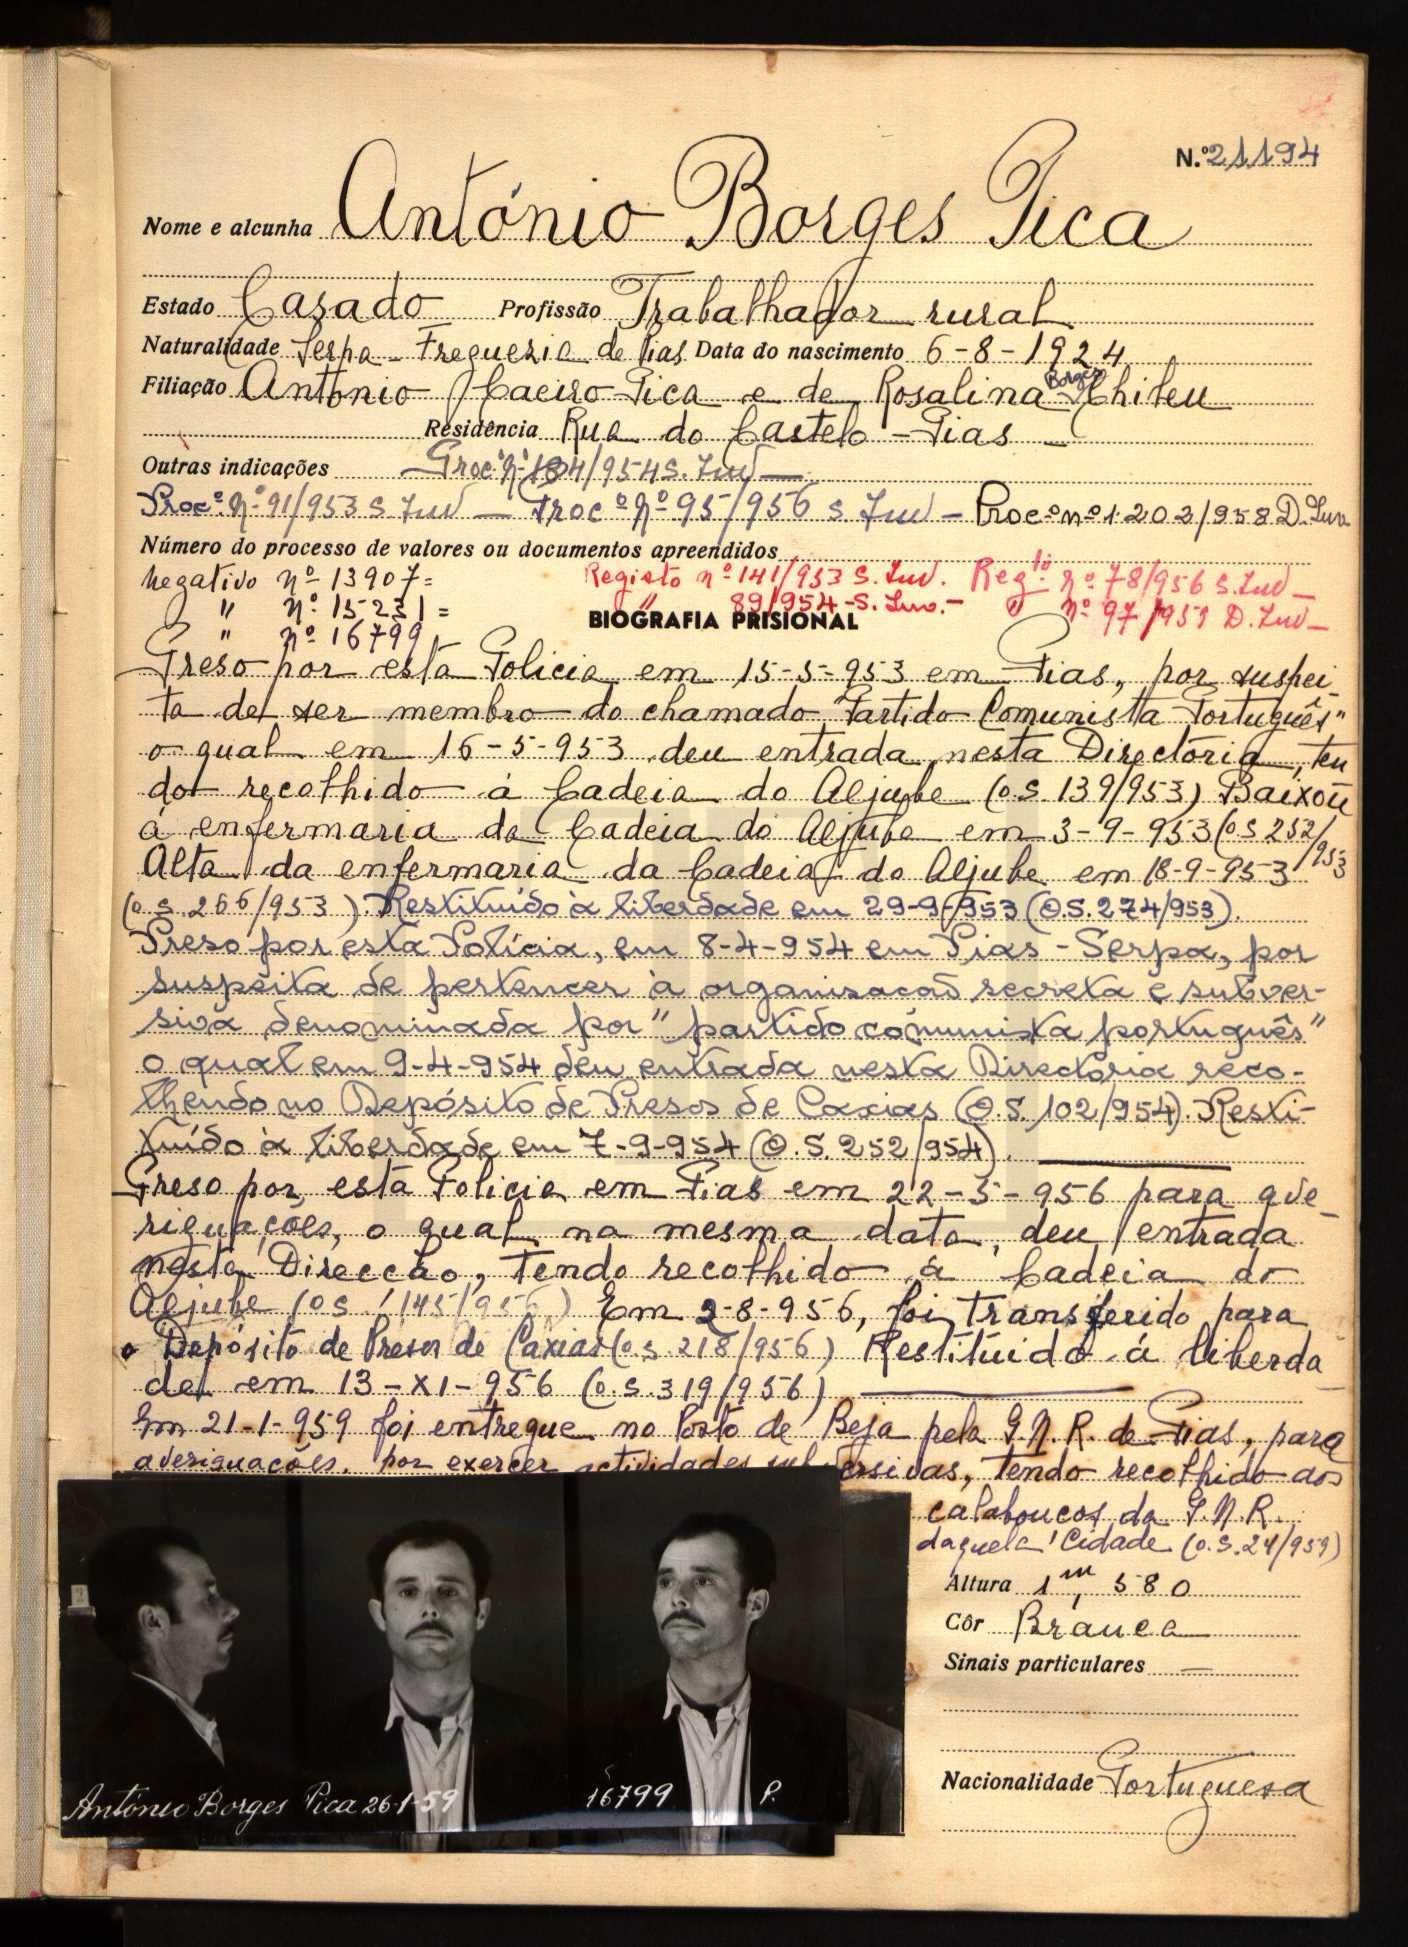 N.º 21194
Nome e alcunha António Borges Pica
Estado Casado Profissão Trabalhador rural
Naturalidade Serpa - Freguezia de Pias Data do nascimento 6-8-1924
Filiação António Caeiro Pica e de Rosalina Borges Chileu
Residência Rua do Castelo - Pias -
Outras indicações Proc. Nº 184/954 S. Inv —
Procº. Nº 91/953 S Inv — Procº Nº 95/956 S Inv — Procº nº 1.202/958 D. Inv
Número do processo de valores ou documentos apreendidos
Negativo nº 13907= Registo nº 141/953 S. Inv. Regto. Nº 78/956 S. Inv —
" nº 15231= " 89/954-S. Inv.- " Nº 97/959 D. Inv —
" nº 16799
BIOGRAFIA PRISIONAL
Preso por esta Policia em 15-5-953 em Pias, por suspei-
ta de ser membro do chamado "Partido Comunista Português"
o qual em 16-5-953 deu entrada nesta Directória, ten
do recolhido à Cadeia do Aljube (o.s. 139/953) Baixou
à enfermaria da Cadeia do Aljube em 3-9-953 (o.s 252/953
Alta da enfermaria da Cadeia do Aljube em 18-9-953
(o.s. 266/953). Restituído à liberdade em 29-9-953 (O.S. 274/953).
Preso por esta Polícia, em 8-4-954 em Pias - Serpa, por
suspeita de pertencer à organisacão secreta e subver-
siva denominada por "partido comunista português"
o qual em 9-4-954 deu entrada nesta Directória reco-
lhendo no Depósito de Presos de Caxias (O.S. 102/954). Resti-
tuído à liberdade em 7-9-954 (O.S. 252/954).
Preso por esta Policia em Pias em 22-5-956 para ave-
riguações, o qual na mesma data, deu entrada
nesta Direcção, tendo recolhido à Cadeia do
Aljube (o s. 145/956) Em 2-8-956, foi transferido para
o Depósito de Presos de Caxias (o.s. 218/956) Restituido à liberda
de em 13-XI-956 (o.s. 319/956)
Em 21-1-959 foi entregue no Posto de Beja pela G.N.R. de Pias, para
averiguações, por exercer actividades subversivas, tendo recolhido aos
calabouços da G.N.R.
daquela Cidade (o.s. 24/959)
Altura 1m, 580
Côr Branca
Sinais particulares —
Nacionalidade Portuguesa
2
António Borges Pica 26-1-59 16799 P.